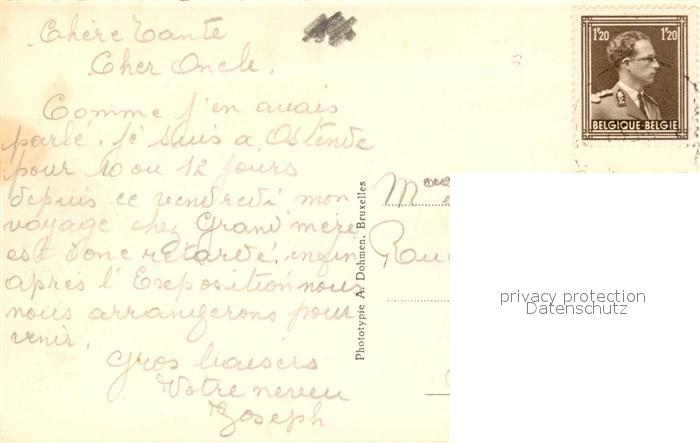 Chère Tante
Cher Oncle.
Comme j'en avais
parlé, je suis a Ostende
pour 10 ou 12 jours
depuis ce vendredi mon
voyage chez Grand'mère
est donc retardé. enfin
après l'Exposition nous
nous arrangerons pour
venir.
Gros baisers
Votre neveu
Joseph
Phototypie A. Dohmen, Bruxelles
1F20 1F20
BELGIQUE-BELGIE
privacy protection
Datenschutz